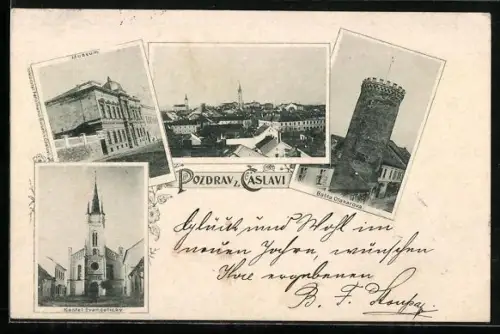 Museum
POZDRAV z ČÁSLAVI
Bašta Otakarova
Kostel Evangelický
Glück und Wohl im
neuen Jahre, wünschen
Ihre ergebenen
B. F.